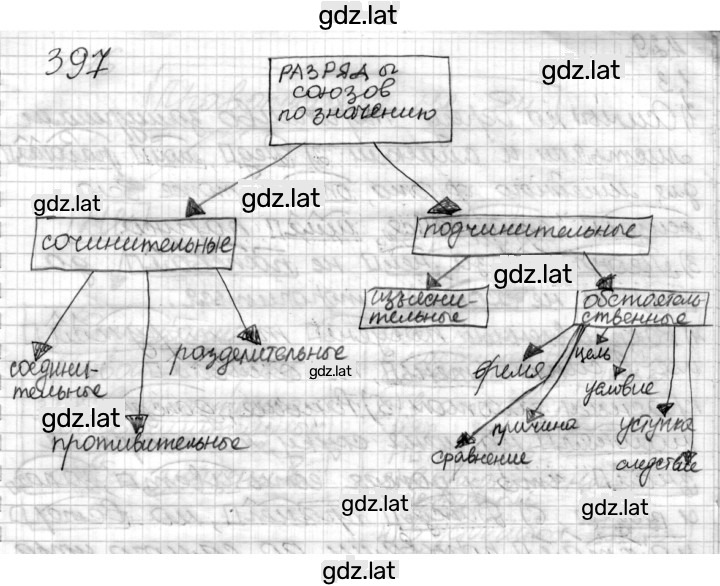 gdz.lat
397
РАЗРЯДЫ
СОЮЗОВ
по значению
gdz.lat
gdz.lat
gdz.lat
сочинительные
подчинительные
gdz.lat
изъясни-
тельные
обстоятель-
ственные
соедини-
тельные
разделительные
gdz.lat
время
цель
условие
gdz.lat
противительные
причина
уступка
сравнение
следствие
gdz.lat
gdz.lat
gdz.lat